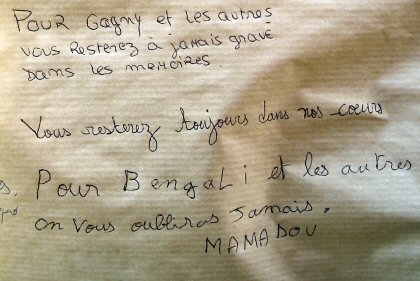 POUR Gagny et les autres
vous Resterez à jamais gravé
Dans les memoires.
Vous resterez toujours dans nos cœurs
s. Pour BengaLi et les autres
on vous oubliras Jamais.
MAMADOU